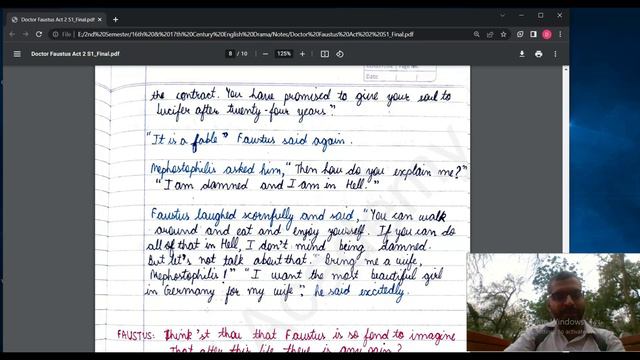 Doctor Faustus Act 2 S1_Final.pdf
File | E:/2nd%20Semester/16th%20&%2017th%20Century%20English%20Drama/Notes/Doctor%20Faustus%20Act%202%20S1_Final.pdf
Doctor Faustus Act 2 S1_Final.pdf
8 / 10
125%
Date
the contract. You have promised to give your soul to
Lucifer after twenty-four years."
"It is a fable" Faustus said again.
Mephostophilis asked him, "Then how do you explain me?"
"I am damned and I am in Hell."
Faustus laughed scornfully and said, "You can walk
around and eat and enjoy yourself. If you can do
all of that in Hell, I don't mind being damned.
But let's not talk about that. Bring me a wife,
Mephostophilis!" "I want the most beautiful girl
in Germany for my wife". he said excitedly.
FAUSTUS: Think'st thou that Faustus is so fond to imagine
That after this life there is any pain?